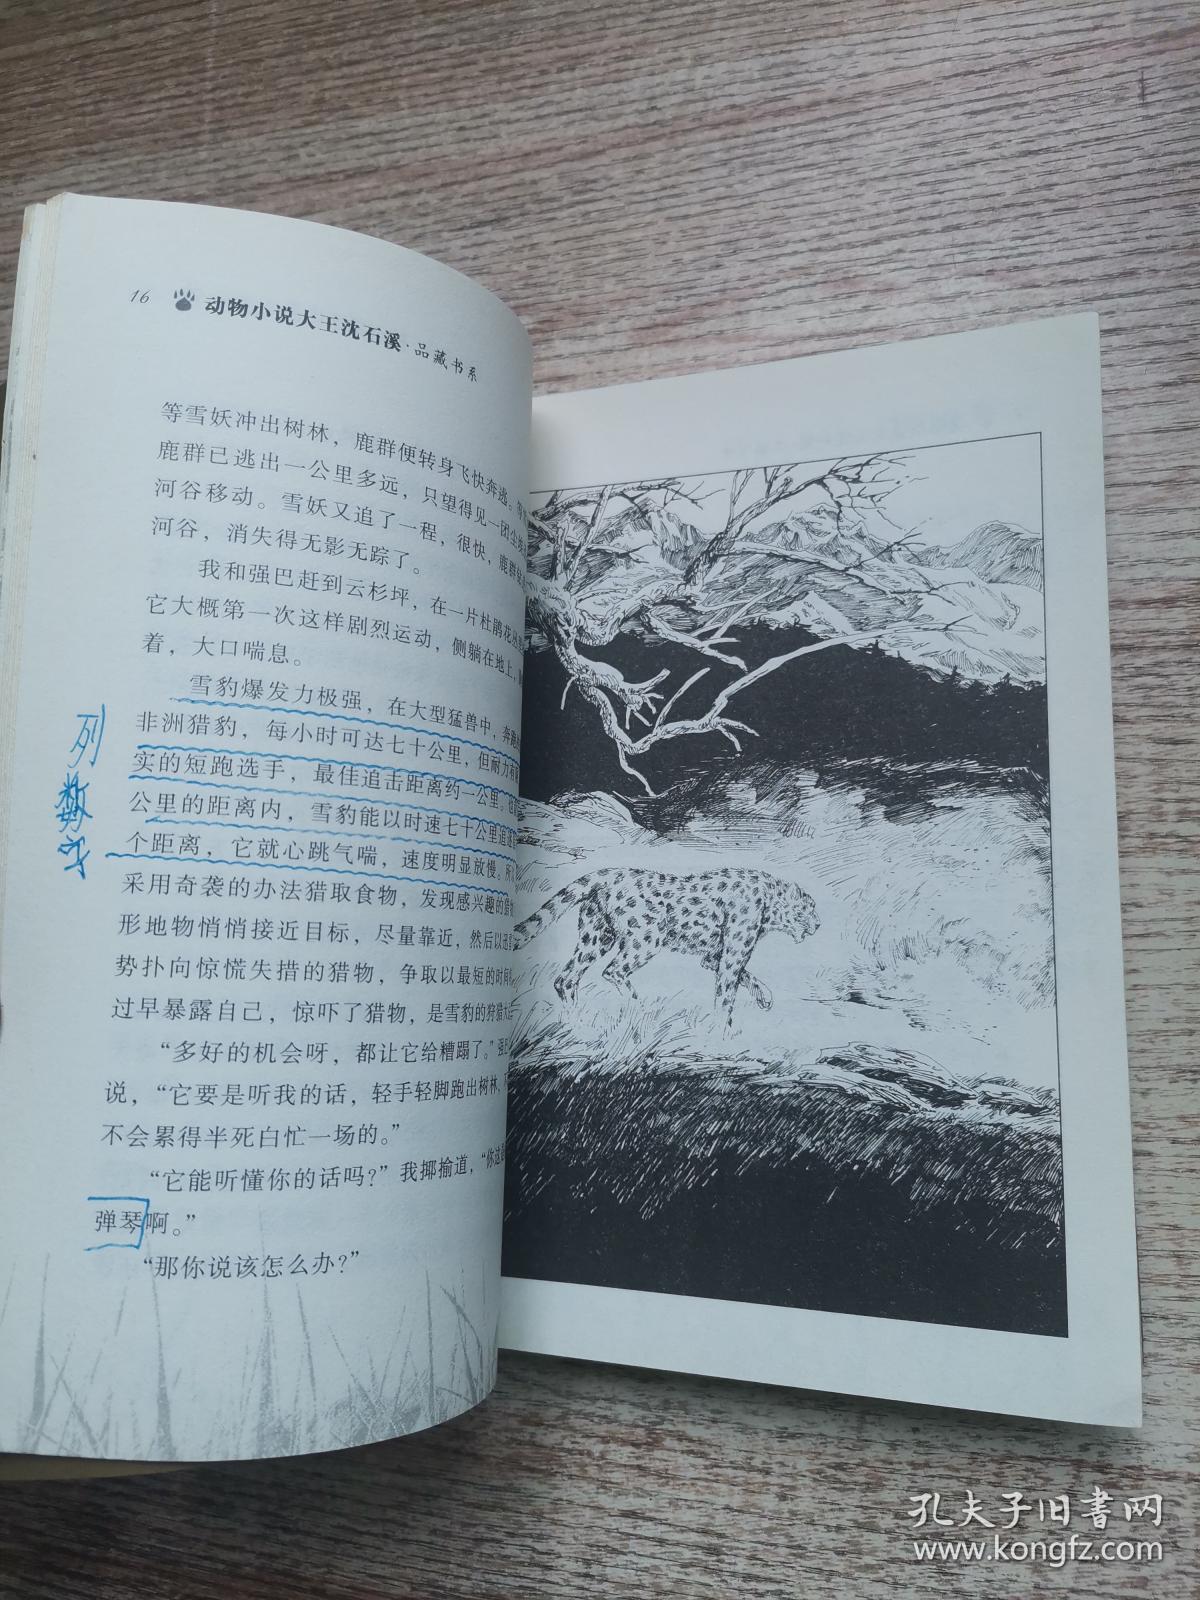 16 动物小说大王沈石溪·品藏书系
等雪妖冲出树林，鹿群便转身飞快奔逃。等
鹿群已逃出一公里多远，只望得见一团尘埃
河谷移动。雪妖又追了一程，很快，鹿群
河谷，消失得无影无踪了。
我和强巴赶到云杉坪，在一片杜鹃花丛
它大概第一次这样剧烈运动，侧躺在地上，
着，大口喘息。
雪豹爆发力极强，在大型猛兽中，奔跑
非洲猎豹，每小时可达七十公里，但耐力有
实的短跑选手，最佳追击距离约一公里。也
公里的距离内，雪豹能以时速七十公里追逐
个距离，它就心跳气喘，速度明显放慢。所
采用奇袭的办法猎取食物，发现感兴趣的猎
形地物悄悄接近目标，尽量靠近，然后以迅
势扑向惊慌失措的猎物，争取以最短的时间
过早暴露自己，惊吓了猎物，是雪豹的狩猎大
“多好的机会呀，都让它给糟蹋了。”强
说，“它要是听我的话，轻手轻脚跑出树林，
不会累得半死白忙一场的。”
“它能听懂你的话吗？”我揶揄道，“你这
弹琴啊。”
“那你说该怎么办？”
列数字
孔夫子旧書网
www.kongfz.com